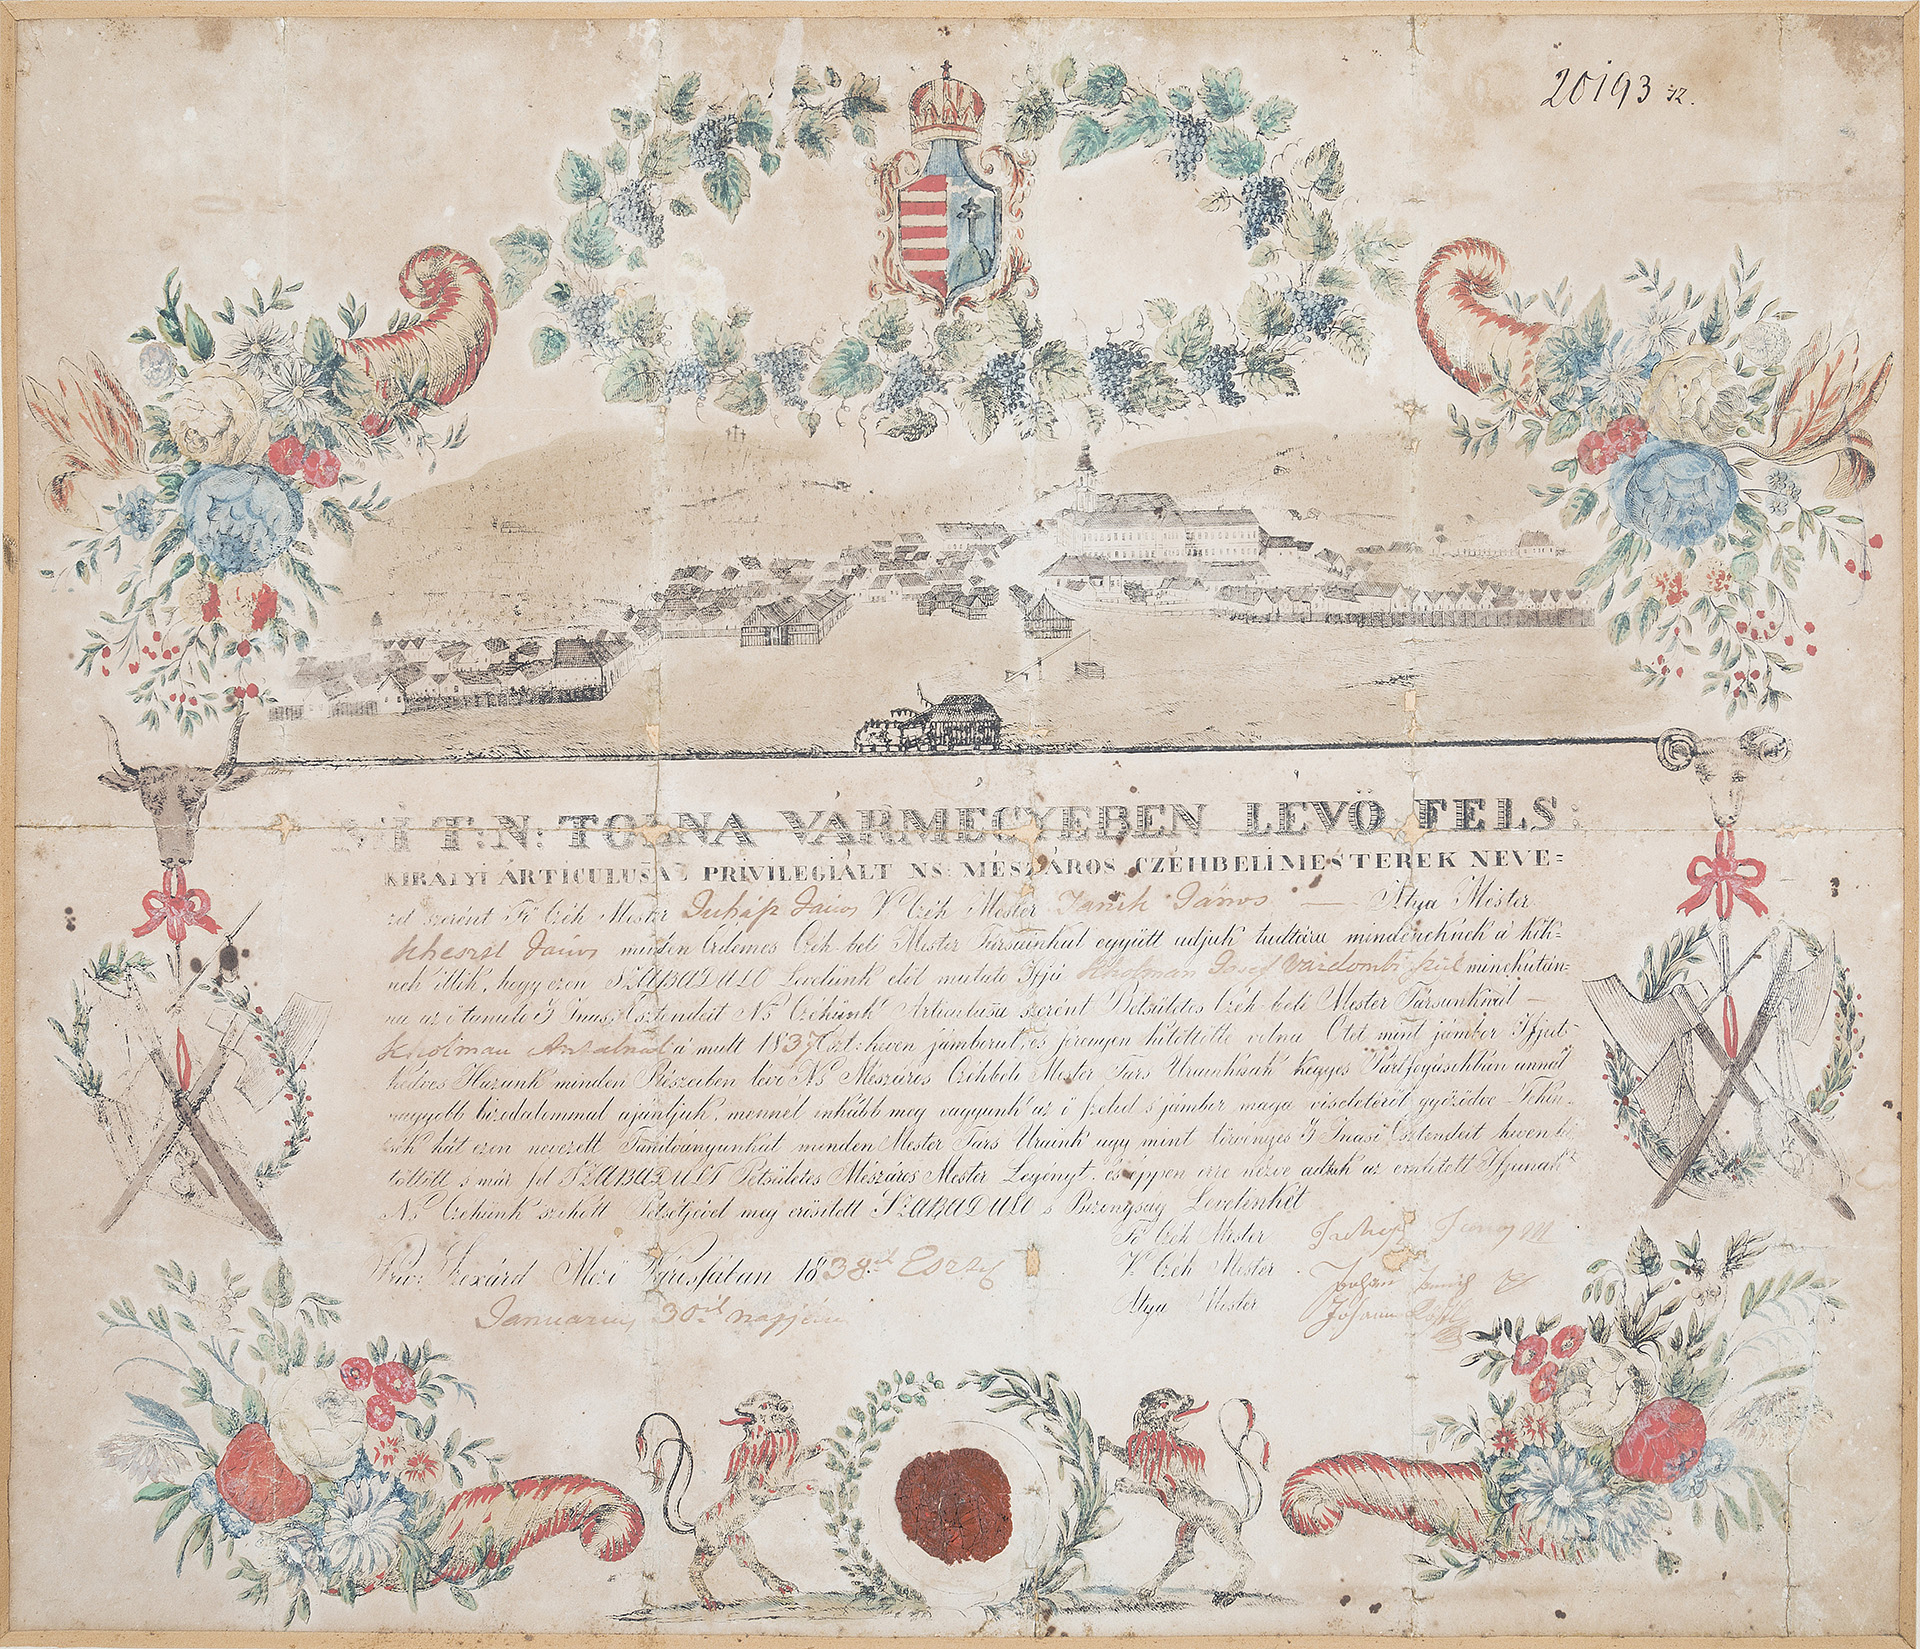 20193
MI T: N: TOLNA VÁRMEGYEBEN LEVÖ FELS:
KIRÁLYI ÁRTICULUSA PRIVILEGIÁLT NS: MÉSZÁROS CZÉHBELI MESTEREK NEVE=
zet szerént Fő Czéh Mester Juhász János V. Czéh Mester Janik János — Atya Mester
János minden Érdemes Czéh-beli Mester Társainkal együtt adjuk tudtára mindeneknek a kik=
nek illik, hogy ezen SZABADULO Levelünk elöl mutato Ifjú Kholman Josef Várdombi szül minekután=
na az ő tanuló 3 Inasi Esztendeit Ns Czéhünk Articulusa szerént Bötsületes Czéh-beli Mester Társunknál —
Kholman Antalnál a mult 1837 Eszt: hiven jámborul, és
kedves Hazánk minden Részeiben lévő Ns Mészáros Czéhbéli Mester Társ Urainknak kegyes Pártfogásokban annál
nagyobb bizodalommal ajánljuk, mennél inkább meg vagyunk az ő szelid s jámbor maga viseletéröl győződve Tekin=
hát ezen nevezett Tanítványunkat minden Mester Társ Uraink ugy mint törvényes 3 Inasi Esztendeit hiven ki
töltött s már fel SZABADULT Bötsületes Mészáros Mester Legényt, és éppen erre nézve adtuk az emlitett Ifjunak
Ns Czéhünk szokott Petsétjével meg erősitett SZABADULO s Bizonyság Levelünket
Fő Czéh Mester Juhász János
Priv: Szexárd Mező Várossában 1838
V. Czéh Mester Johan Janich
Januarius 30ik napján
Atya Mester Johann